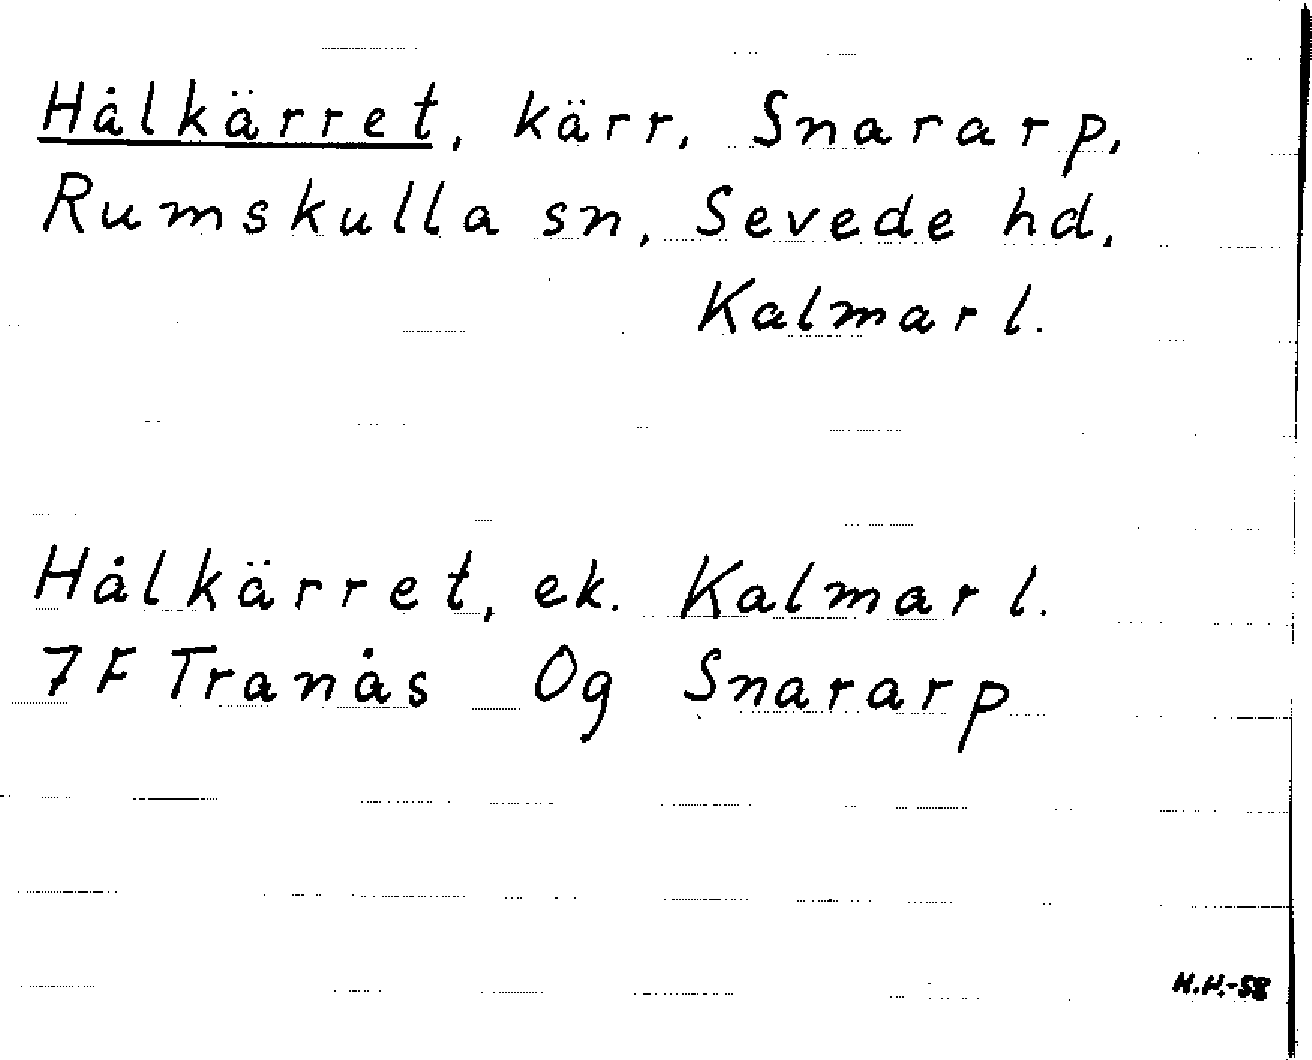 Hålkärret, kärr, Snararp,
Rumskulla sn, Sevede hd,
Kalmar l.
Hålkärret, ek. Kalmar l.
7F Tranås Og Snararp
H.H.-58